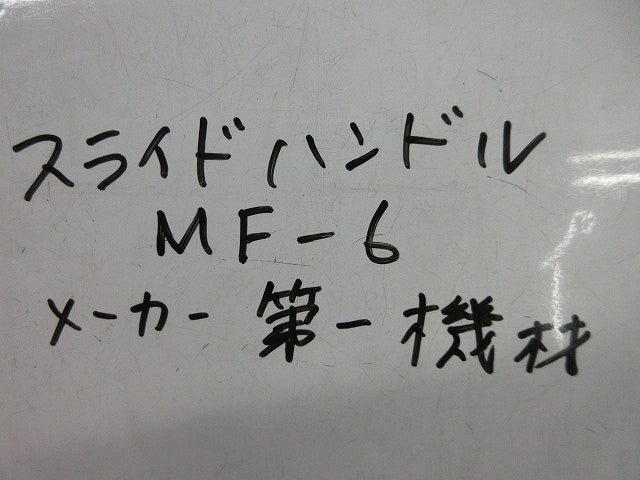 スライドハンドル
MF-6
メーカー 第一機材